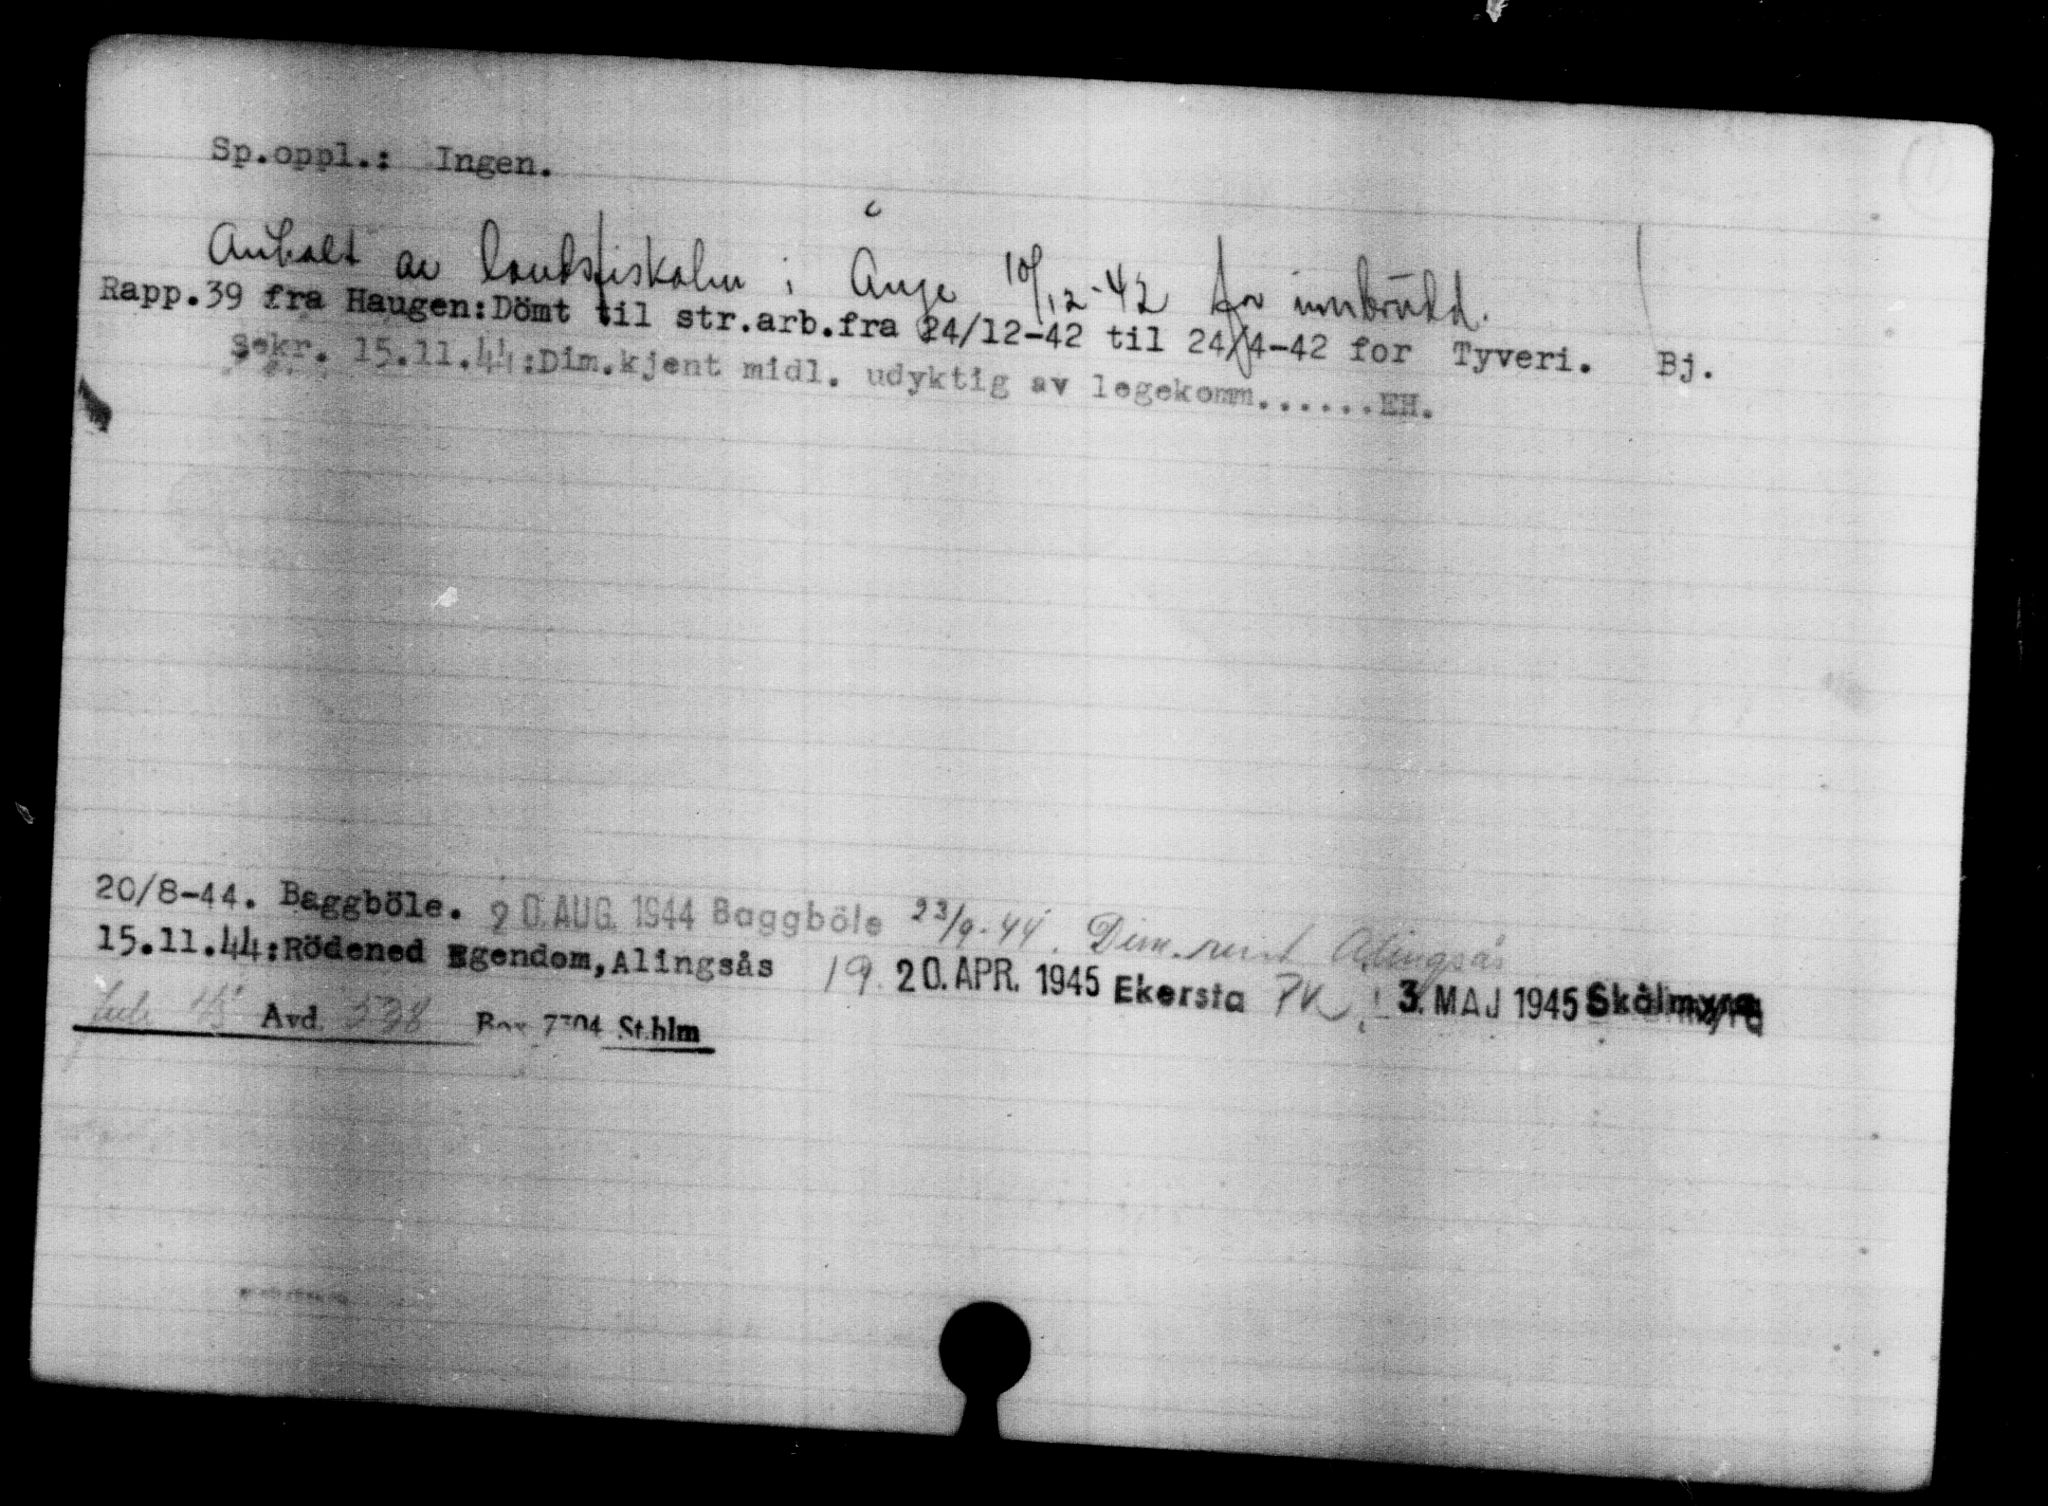 Sp.oppl.: Ingen.
Anholt av landsfiskalen i Ånge 10/12-42 for innbrudd.
Rapp.39 fra Haugen:Dömt til str.arb.fra 24/12-42 til 24/4-42 for Tyveri. Bj.
Sekr. 15.11.44:Dim.kjent midl. udyktig av legekomm......EH.
20/8-44. Baggböle. 20. AUG. 1944 Baggböle 23/9-44. Dim. Alingsås
15.11.44:Rödened Egendom,Alingsås 19. 20. APR. 1945 Ekersta PK 3. MAJ 1945 Skålmyra
Avd. 538 Box 7704 Sthlm